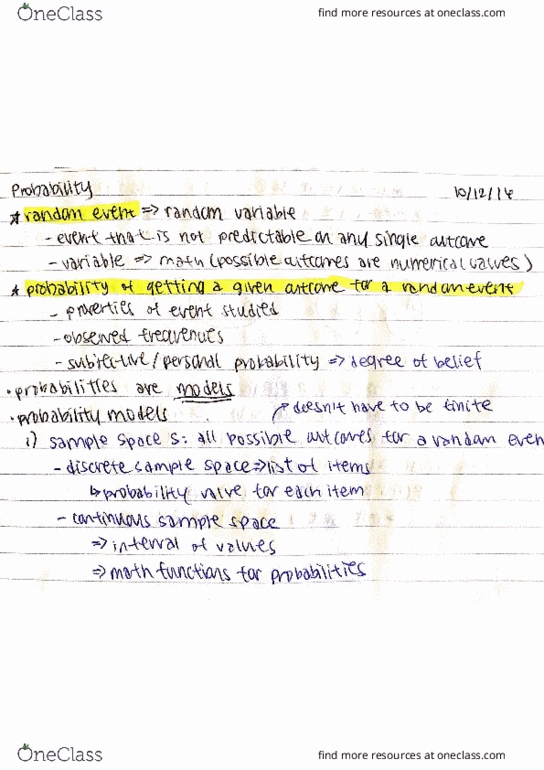 OneClass find more resources at oneclass.com
Probability 10/12/14
* random event => random variable
- event that is not predictable on any single outcome
- variable => math (possible outcomes are numerical values)
* probability of getting a given outcome for a random event
- properties of event studies
- observed frequencies
- subjective / personal probability => degree of belief
• probabilities are models
• probability models doesn't have to be finite
1) sample space S: all possible outcomes for a random even
- discrete sample space => list of items
↳ probability value for each item
- continuous sample space
=> interval of values
=> math functions for probabilities
OneClass find more resources at oneclass.com